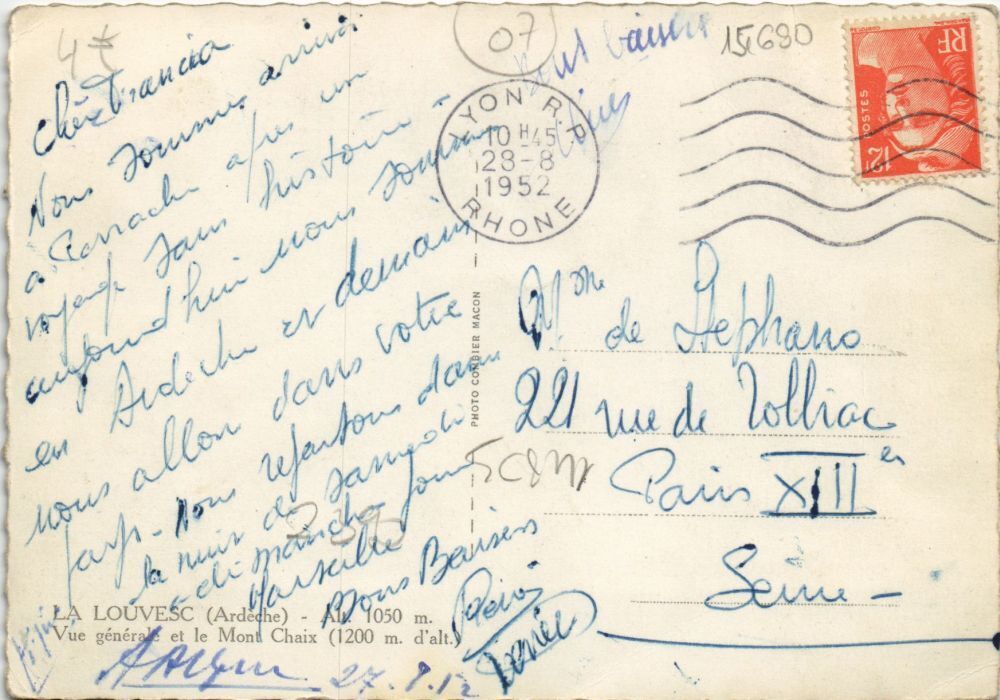 4 €
07
15680
Chère Francia
Nous sommes arrivé
a Perrache apres un
voyage sans histoire
aujourd'hui nous sommes
en Ardeche et demain
nous allon dans votre
pays - Nous repartons dans
la nuit de samedi
a dimanche pour
Marseille
Bons Baisers
27.8.52
LYON R.P.
10 H 45
28-8
1952
RHONE
RF
POSTES
12F
PHOTO COMBIER MACON
Mme de Stephano
221 rue de Tolbiac
Paris XIII
Seine -
LA LOUVESC (Ardèche) - Alt. 1050 m.
Vue générale et le Mont Chaix (1200 m. d'alt.)